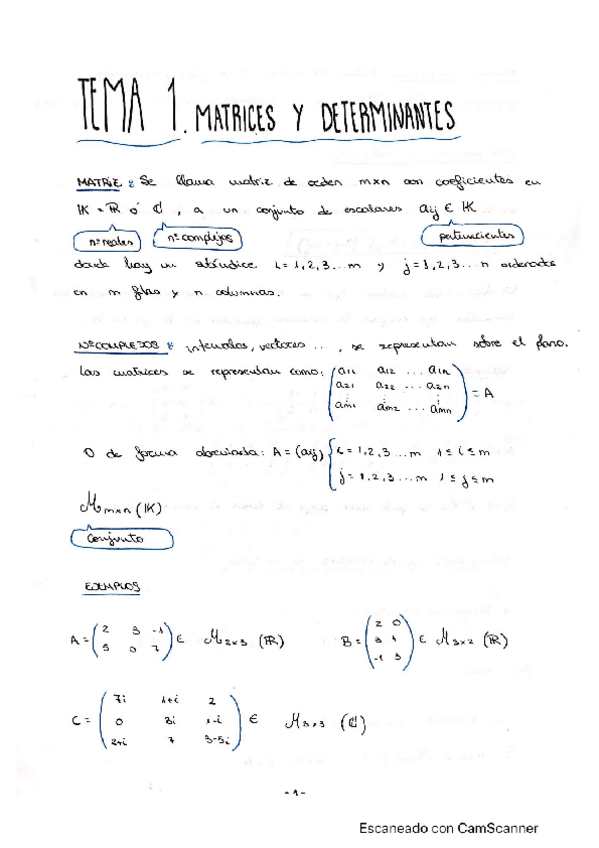 TEMA 1. MATRICES Y DETERMINANTES
MATRIZ : Se llama matriz de orden mxn con coeficientes en
IK = IR ó ℂ, a un conjunto de escalares aij ∈ IK
nº reales nº complejos pertenecientes
donde hay un subíndice i = 1, 2, 3 ... m y j = 1, 2, 3 ... n ordenados
en m filas y n columnas.
Nº COMPLEJOS : intervalos, vectores ..., se representan sobre el plano.
Las matrices se representan como: ( a11 a12 ... a1n
a21 a22 ... a2n
⋮ ⋮ ⋮
am1 am2 ... amn ) = A
O de forma abreviada: A = (aij) { i = 1, 2, 3 ... m 1 ≤ i ≤ m
j = 1, 2, 3 ... m 1 ≤ j ≤ m
Mmxn (IK)
Conjunto
EJEMPLOS
A = ( 2 3 -1
5 0 7 ) ∈ M2x3 (IR)
B = ( 2 0
3 1
-1 3 ) ∈ M3x2 (IR)
C = ( 7i 1+i 2
0 3i 1-i
2+i 7 3-5i ) ∈ M3x3 (ℂ)
-1-
Escaneado con CamScanner